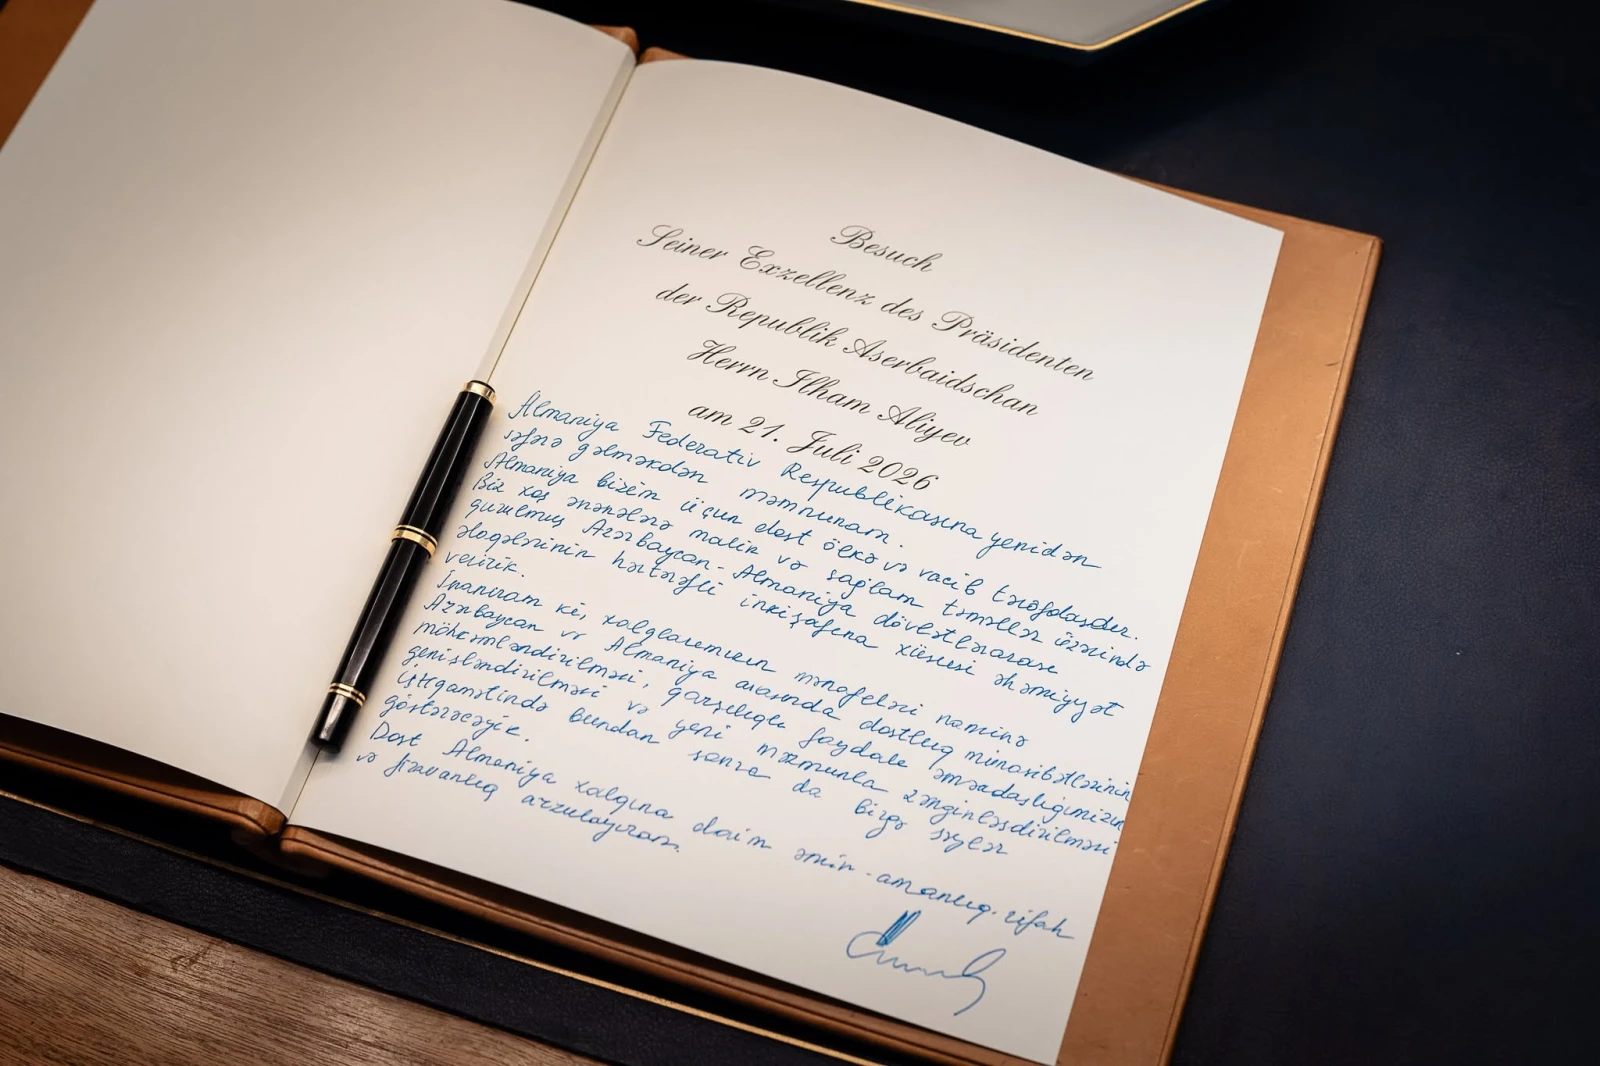 Besuch
Seiner Exzellenz des Präsidenten
der Republik Aserbaidschan
Herrn Ilham Aliyev
am 21. Juli 2026
Almaniya Federativ Respublikasına yenidən
səfərə gəlməkdən məmnunam.
Almaniya bizim üçün dost ölkə və vacib tərəfdaşdır.
Biz xoş ənənələrə malik və sağlam təməllər üzərində
qurulmuş Azərbaycan-Almaniya dövlətlərarası
əlaqələrinin hərtərəfli inkişafına xüsusi əhəmiyyət
veririk.
İnanıram ki, xalqlarımızın mənafeləri naminə
Azərbaycan və Almaniya arasında dostluq münasibətlərinin
möhkəmləndirilməsi, qarşılıqlı faydalı əməkdaşlığımızın
genişləndirilməsi və yeni məzmunla zənginləşdirilməsi
istiqamətində bundan sonra da birgə səylər
göstərəcəyik.
Dost Almaniya xalqına daim əmin-amanlıq, rifah
və firavanlıq arzulayıram.